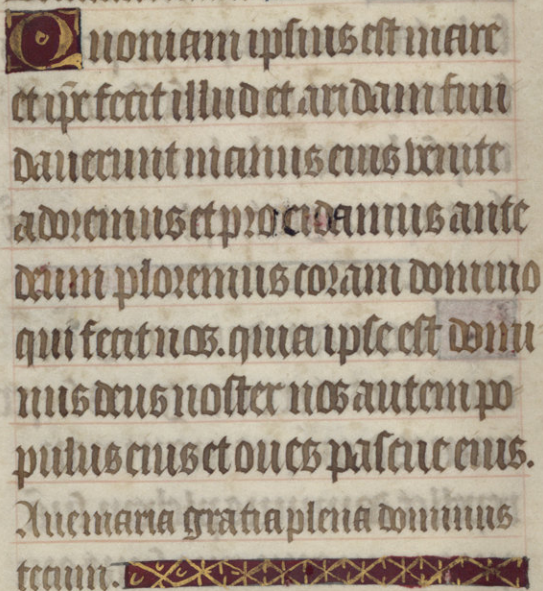 Quoniam ipsius est mare
et ip̄e fecit illud et aridam fun
dauerunt manus eius venite
adoremus et procidamus ante
deum ploremus coram domino
qui fecit nos. quia ipse est domi
nus deus noster nos autem po
pulus eius et oues pascue eius.
Aue maria gratia plena dominus
tecum.